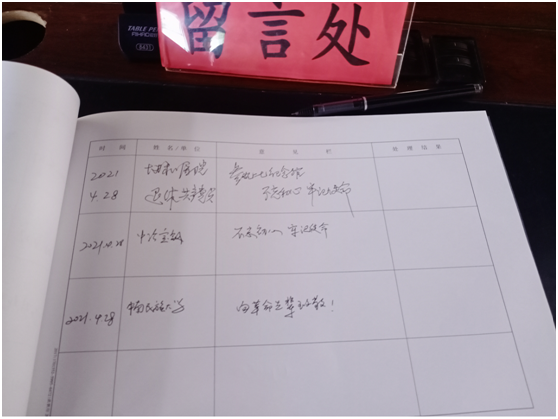 TABLE PE
留言处
时间 姓名/单位 意见栏 处理结果
2021
4.28 退休共产党员
参观 纪念馆
不忘初心 牢记使命
2021.4.28 中冶宝钢 不忘初心 牢记使命
2021.4.28 向革命先辈致敬!